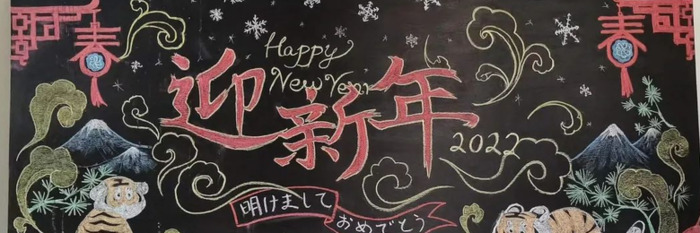 春
春
Happy
New Year
迎新年
2022
明けまして
おめでとう